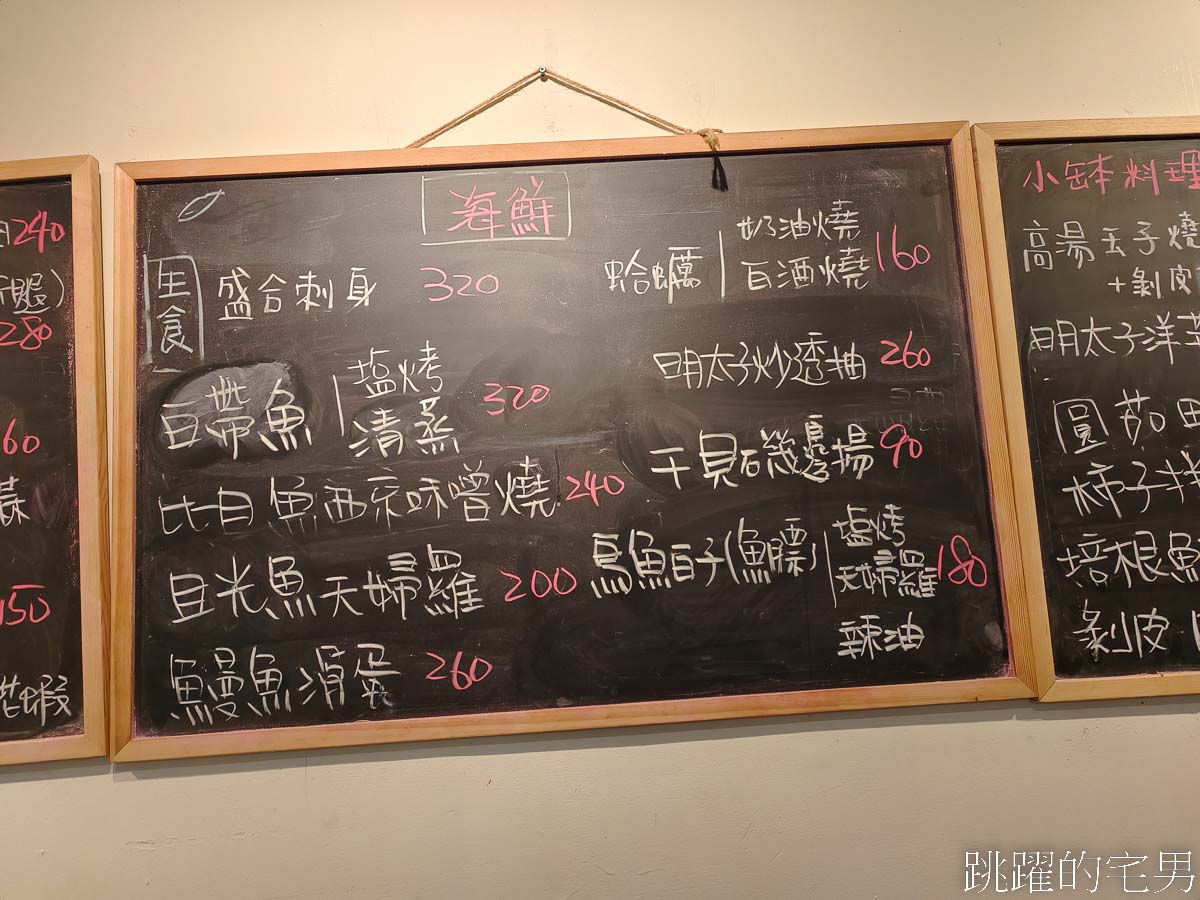 240
腿)
280
60
蒜
150
芒蝦
海鮮
生食
盛合刺身 320
白帶魚 塩烤 320
清蒸
比目魚西京味噌燒 240
目光魚天婦羅 200
鰻魚滑蛋 260
蛤蠣 奶油燒 160
白酒燒
明太子炒透抽 260
干貝磯邊揚 90
烏魚白子(魚膘) 塩烤 180
天婦羅
辣油
小缽料理
高湯玉子燒
+剝皮
明太子洋芋
圓茄田
柿子
培根魚
剝皮
跳躍的宅男